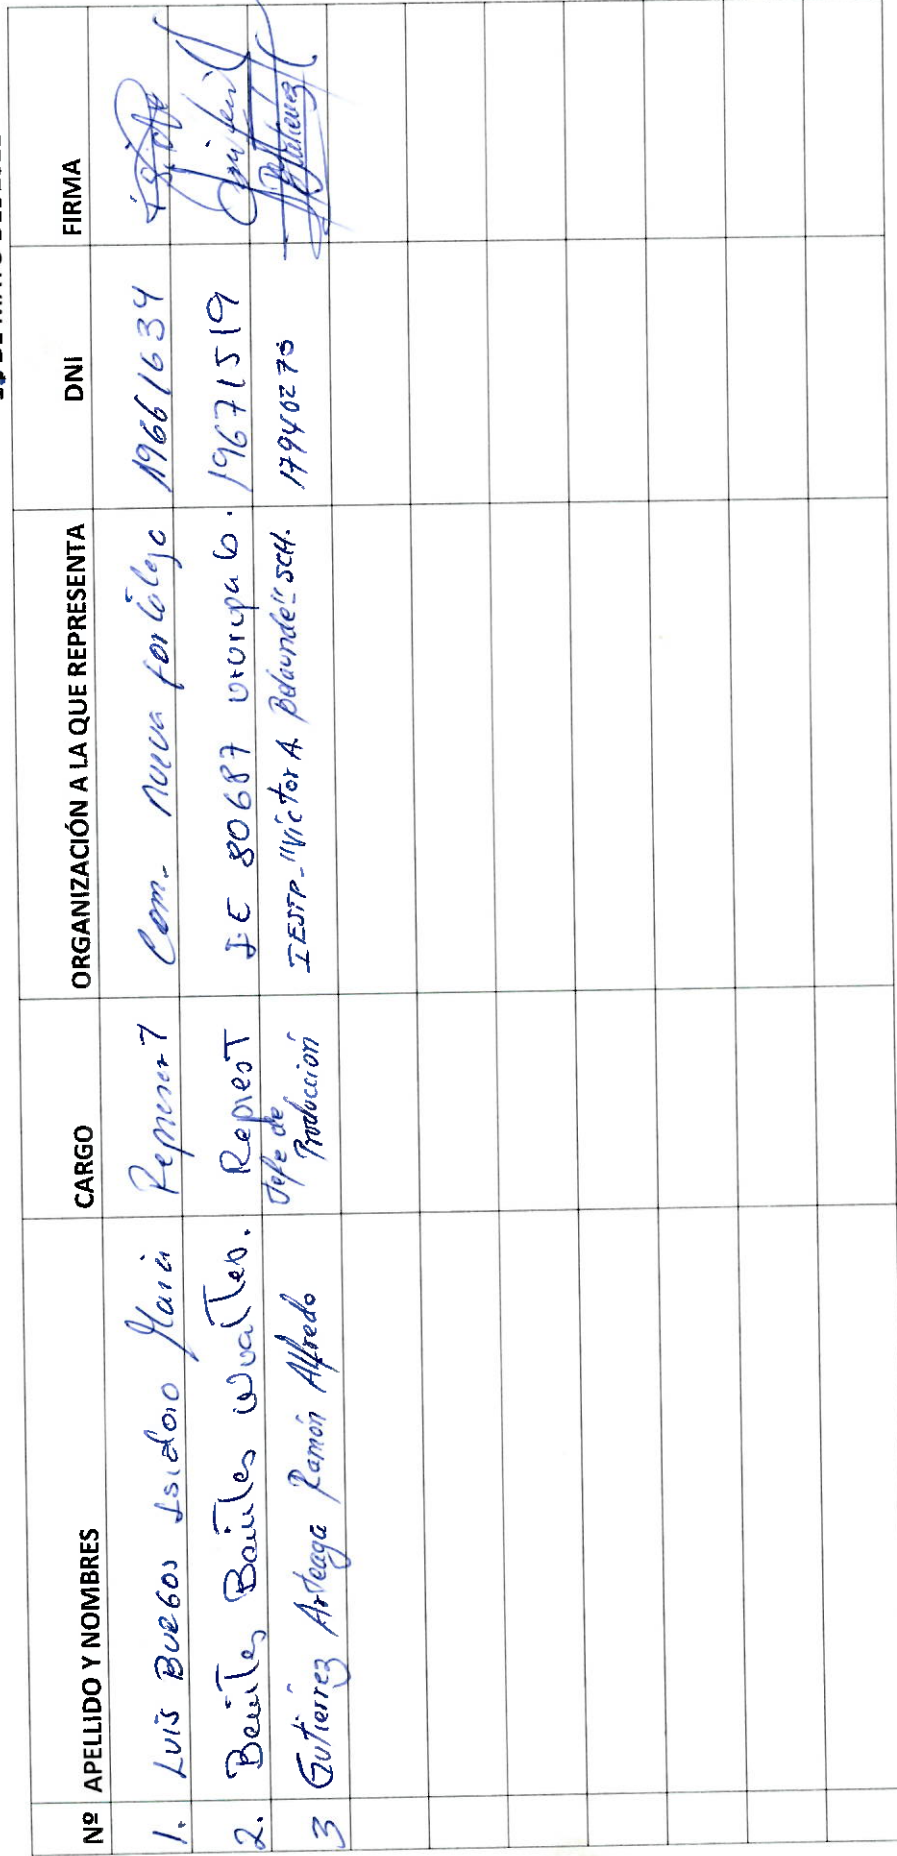 Nº APELLIDO Y NOMBRES CARGO ORGANIZACIÓN A LA QUE REPRESENTA DNI FIRMA
1. Luis Burgos Isidoro María Represent Com. Nueva 19661634
2. Benites Benites Wualter. Represt I.E 80687 19671519
3 Gutierrez Arteaga Ramón Alfredo Jefe de Producción IESTP-"Víctor A. Belaunde"-SCH.